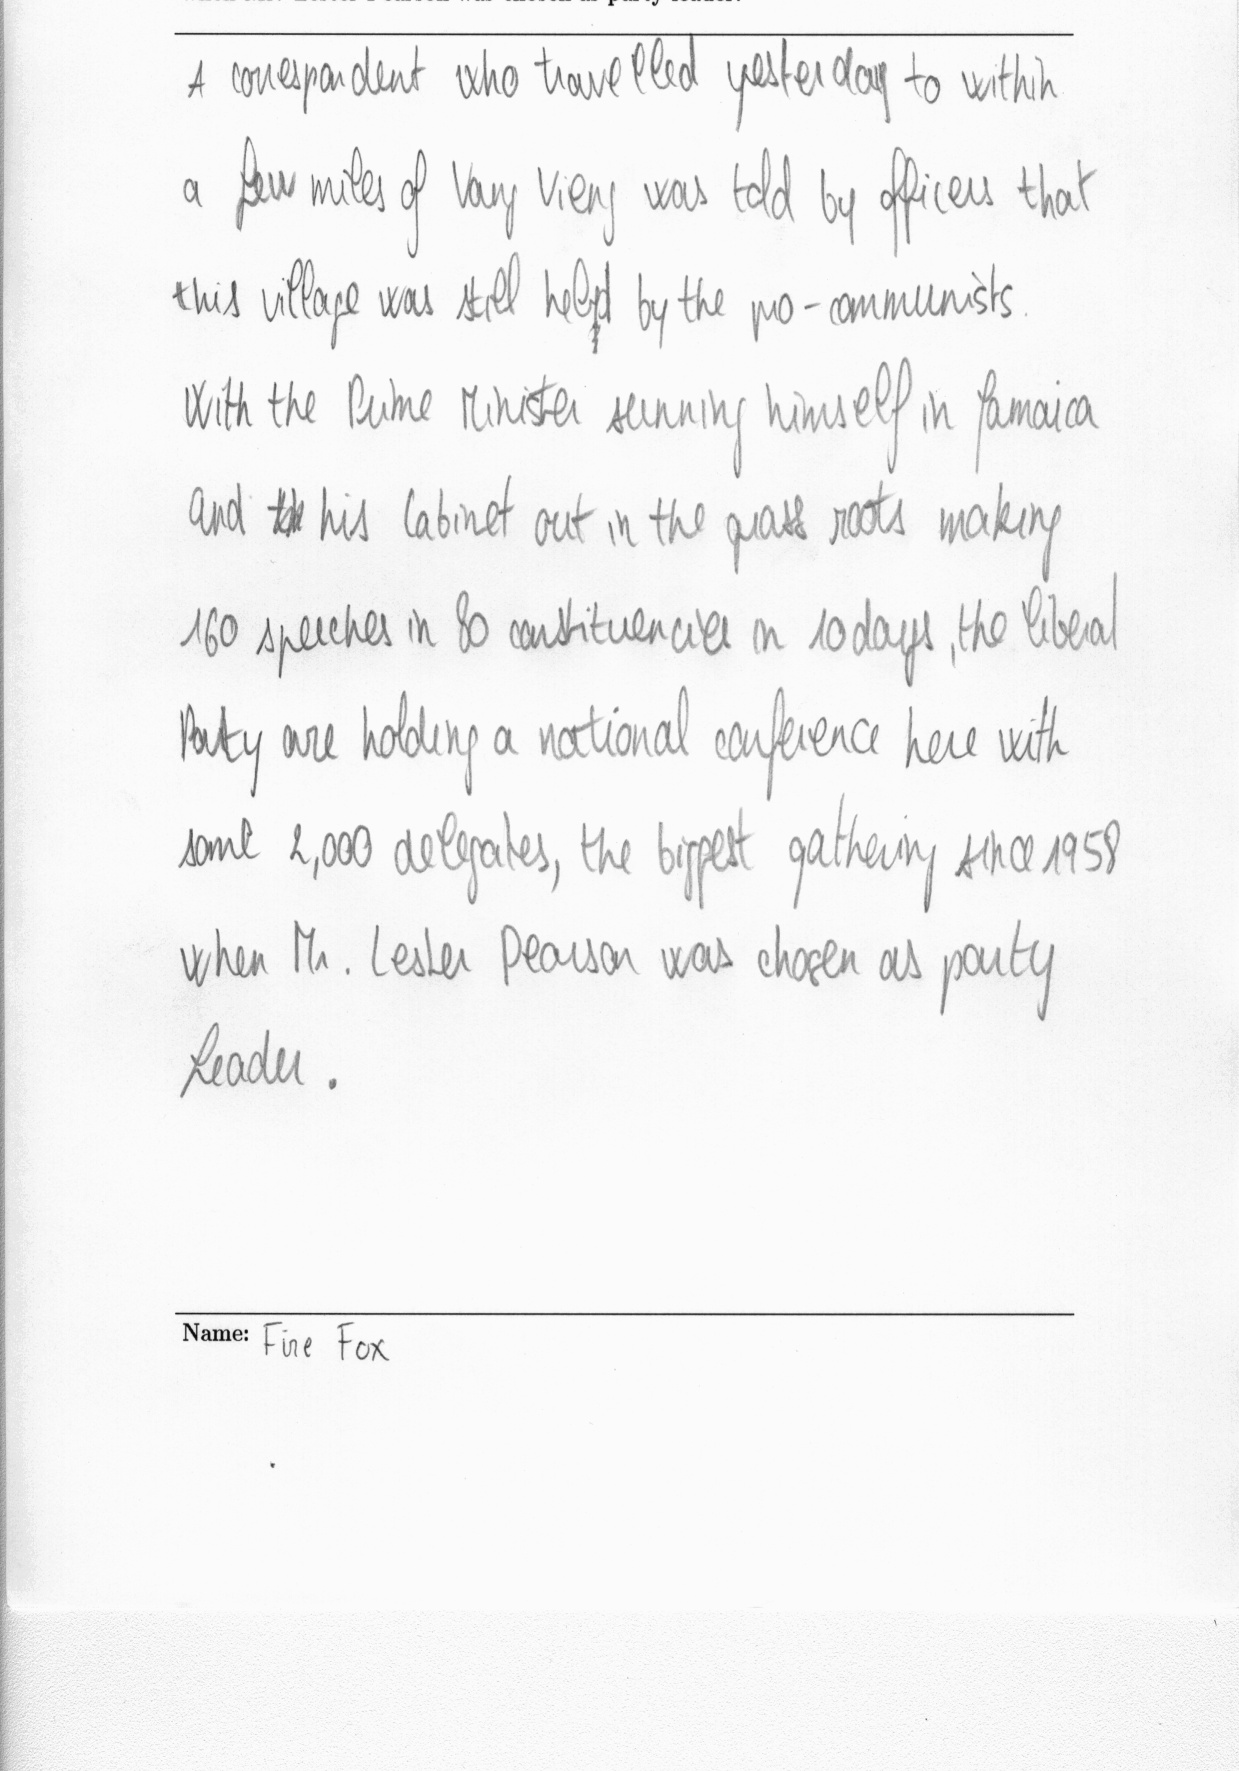 A correspondent who travelled yesterday to within
a few miles of Vang Vieng was told by officers that
this village was still held by the pro-communists.
With the Prime Minister sunning himself in Jamaica
and his Cabinet out in the grass roots making
160 speeches in 80 constituencies in 10 days, the Liberal
Party are holding a national conference here with
some 2,000 delegates, the biggest gathering since 1958
when Mr. Lester Pearson was chosen as party
Leader.
Name: Fire Fox